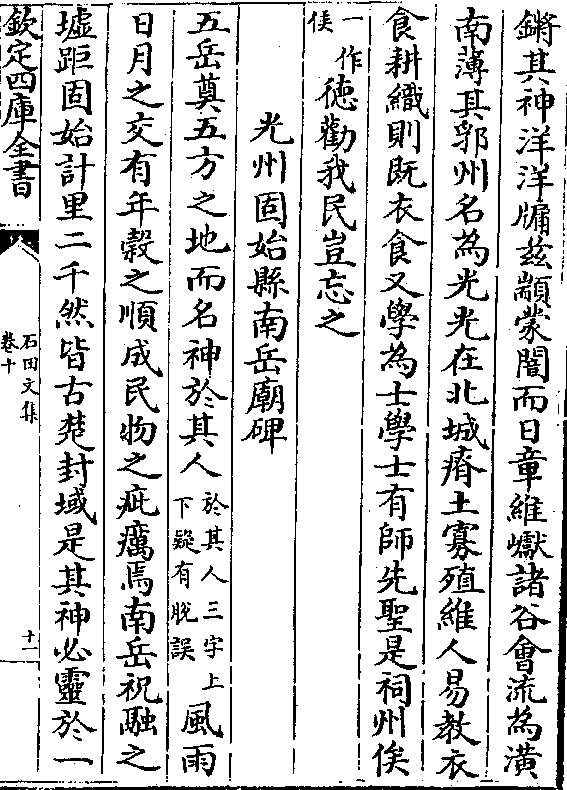 鏘其神洋洋牖茲顓蒙闇而日章維巘諸谷會流為潢
南薄其郛州名為光光在北城瘠土寡殖維人易教衣
食耕織則既衣食又學為士學士有師先聖是祠州俟
一作
侯
德勸我民豈忘之
光州固始縣南岳廟碑
五岳奠五方之地而名神於其人
於其人三字上
下疑有脫誤
風雨
日月之交有年穀之順成民物之疵癘焉南岳祝融之
墟距固始計里二千然皆古楚封域是其神必靈於一
欽定四庫全書
石田文集
卷十
十一